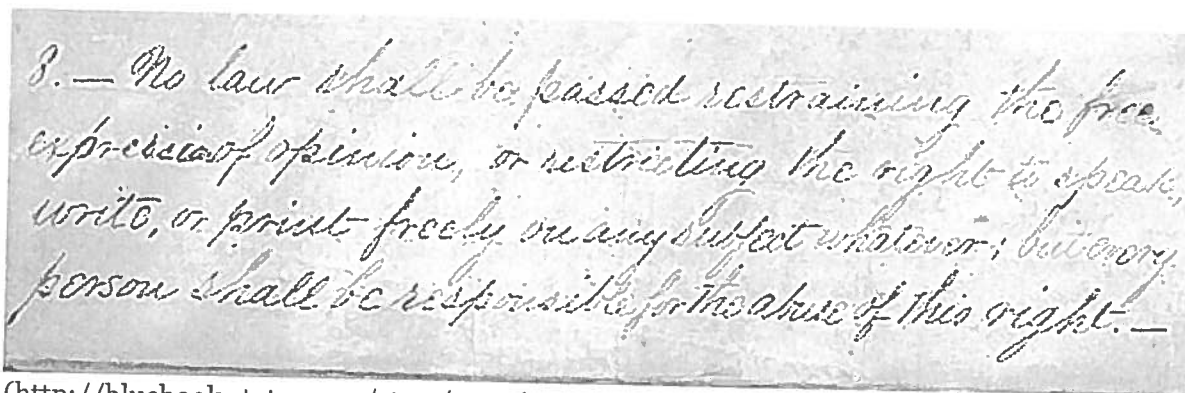 8. — No law shall be passed restraining the free
expression of opinion, or restricting the right to speak,
write, or print freely on any subject whatever; but every
person shall be responsible for the abuse of this right. —
(http://bluebook.state.